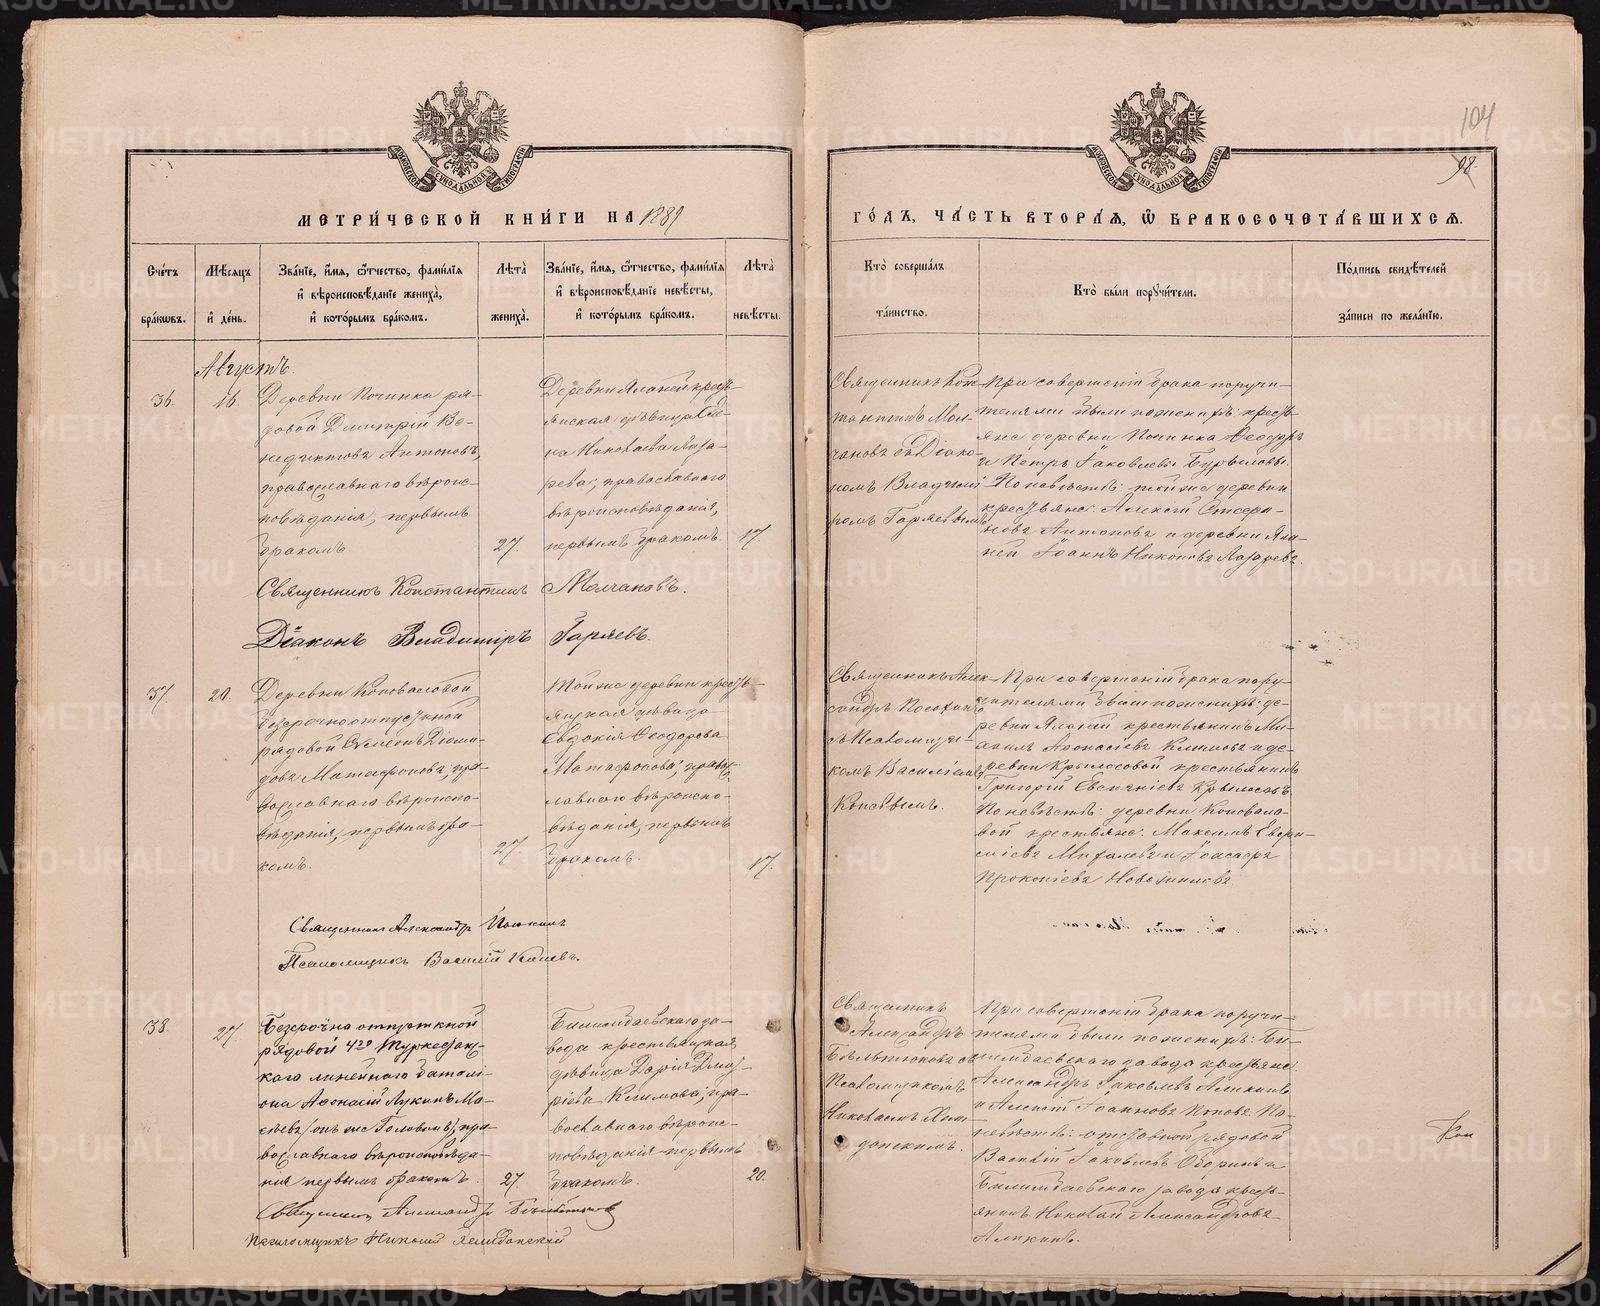 104
98.
МЕТРИ́ЧЕСКОЙ КНИ́ГИ НА 1889
ГО́ДЪ, ЧА́СТЬ ВТОРА́Я, Ѿ БРАКОСОЧЕТА́ВШИХСЯ.
Сче́тъ бра́кωвъ.
Мѣ́сяцъ и҆ де́нь.
Зва́нїе, и҆́мя, ѻ҆́тчество, фами́лїя
и҆ вѣроисповѣ́данїе жениха̀,
и҆ кото́рымъ бра́комъ.
Лѣ́та жениха̀.
Зва́нїе, и҆́мя, ѻ҆́тчество, фами́лїя
и҆ вѣроисповѣ́данїе невѣ́сты,
и҆ кото́рымъ бра́комъ.
Лѣ́та невѣ́сты.
Кто̀ соверша́лъ та́инство.
Кто̀ бы́ли порꙋчи́тели.
По́дпись свидѣ́телей за́писи по жела́нїю.
Августъ.
36.
16.
Деревни Починка ря-
довой Дмитрій Ве-
недиктовъ Антоновъ,
православнаго вѣроис-
повѣданія, первымъ
бракомъ.
27.
Деревни Аланей кресть-
янская дѣвица
на Николаева Лаза-
рева; православнаго
вѣроисповѣданія,
первымъ бракомъ.
17.
Священникъ Кон-
стантинъ Мол-
чановъ съ Діако-
номъ Владимі-
ромъ Гаряевымъ
При совершеніи брака поручи-
телями были по женихѣ: кресть-
яне деревни Починка Ѳеодоръ
и Петръ Іаковлевы
По невѣстѣ: той же деревни
крестьяне: Алексѣй
Антоновъ и деревни Ала-
ней Іоаннъ Никоновъ Лазаревъ
Священникъ Константинъ Молчановъ.
Діаконъ Владиміръ Гаряевъ.
37.
20.
Деревни Коноваловой
безсрочноотпускной
рядовой Сѵмеонъ Діоми-
довъ Матафоновъ, пра-
вославнаго вѣроиспо-
вѣданія, первымъ бра-
комъ.
27.
Той же деревни кресть-
янская дѣвица
Евдокія Ѳеодорова
Матафонова; правос-
лавного вѣроиспо-
вѣданія, первымъ
бракомъ.
17.
Священникъ Алек-
сандръ
съ Псаломщи-
комъ Василіемъ
При совершеніи брака пору-
чителями были по женихѣ: де-
ревни Аланей крестьянинъ Ми-
хаилъ Аѳонасіевъ Климовъ и де-
ревни Крылосовой крестьянинъ
Григорій Евсигніевъ Крылосовъ
По невѣстѣ: деревни Коновало-
вой крестьяне: Максимъ
и Іоасафъ
Прокопіевъ Новоселовъ.
Священникъ Александръ
Псаломщикъ Василій
38.
27.
Безсрочно отпускной
рядовой 4го Туркестанс-
каго линейнаго баталі-
она Аѳонасій Лукинъ Мо-
сѣевъ (онъ же Головинъ), пра-
вославнаго вѣроисповѣда-
нія первымъ бракомъ.
27.
Билимбаевскаго за-
вода крестьянская
дѣвица Дарія Дмит-
ріева Климова; пра-
вославнаго вѣроис-
повѣданія первымъ
бракомъ.
20.
Священникъ
Александръ
Бѣльтюковъ съ
Псаломщикомъ
Николаемъ
При совершеніи брака поручи-
телями были по женихѣ: Би-
лимбаевскаго завода крестьяне:
Александръ Іаковлевъ Аликинъ
и Алексій Іоанновъ Поповъ. По
невѣстѣ: отставной рядовой
Василій Іаковлевъ Оборинъ и
Билимбаевскаго завода кресть-
янинъ Николай Александровъ
Аликинъ.
Священникъ Александръ Бѣльтюковъ
Псаломщикъ Николай
METRIKI.GASO-URAL.RU